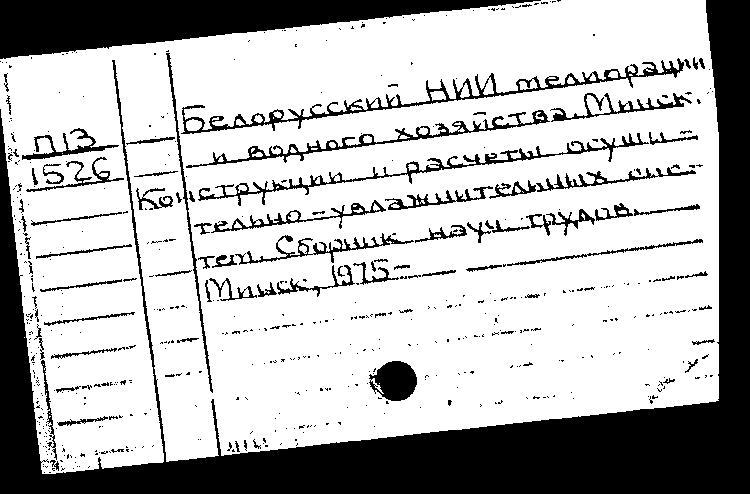 П13
1526
Белорусский НИИ мелиорации
и водного хозяйства. Минск.
Конструкции и расчеты осуши-
тельно-увлажнительных сис-
тем. Сборник науч. трудов.
Минск, 1975-